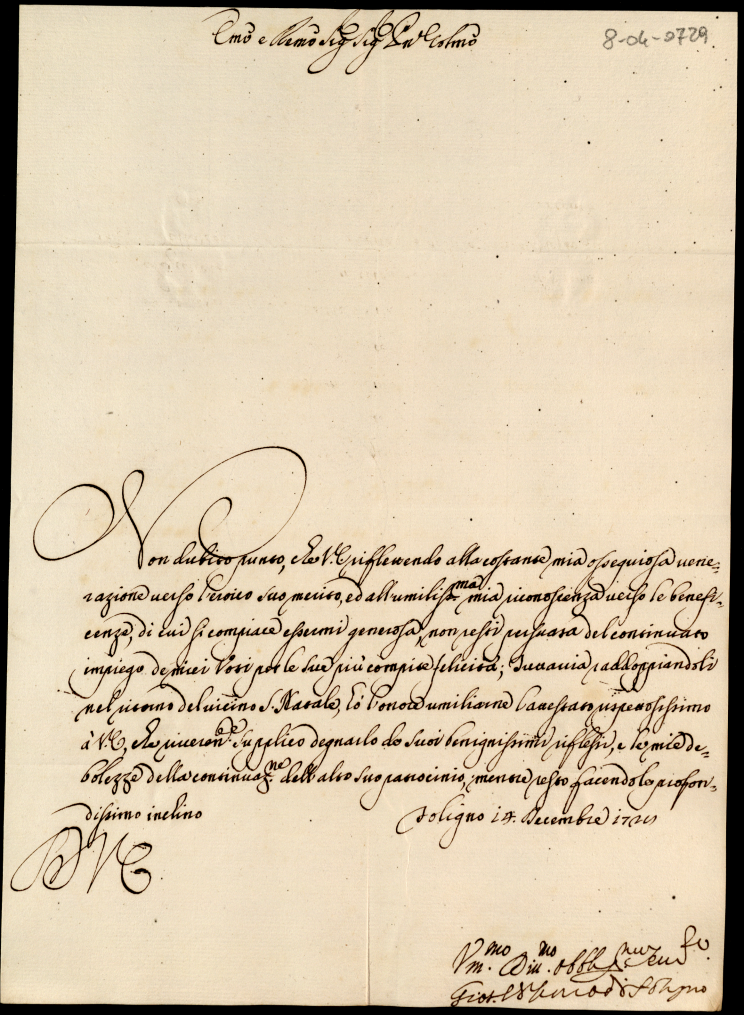 Emõ e Rmõ Sig Sig Prõn Colmõ
8-04-0729
Non dubito punto, che V.E. riflettendo alla costante mia ossequiosa vene=
razione verso l'eroico suo merito, ed all'umiliss.ma mia riconoscienza verso le benefi=
cenze, di cui si compiace essermi generosa, non resti persuasa del continuato
impiego de miei Voti per le sue più compite felicità; Tuttavia raddoppiandoli
nel ritorno del vicino S. Natale, hò l'onore umiliarne l'attestato rispettosissimo
à V.E., che riverent.e supplico degnarlo de suoi benignissimi riflessi, e le mie de=
bolezze della continuaz.ne dell'alto suo patrocinio, mentre resto facendole profon=
dissimo inclino
Foligno 14. Decembre 172
B V E
Vm.mo Div.mo obbl Ser
Vescovo di Foligno